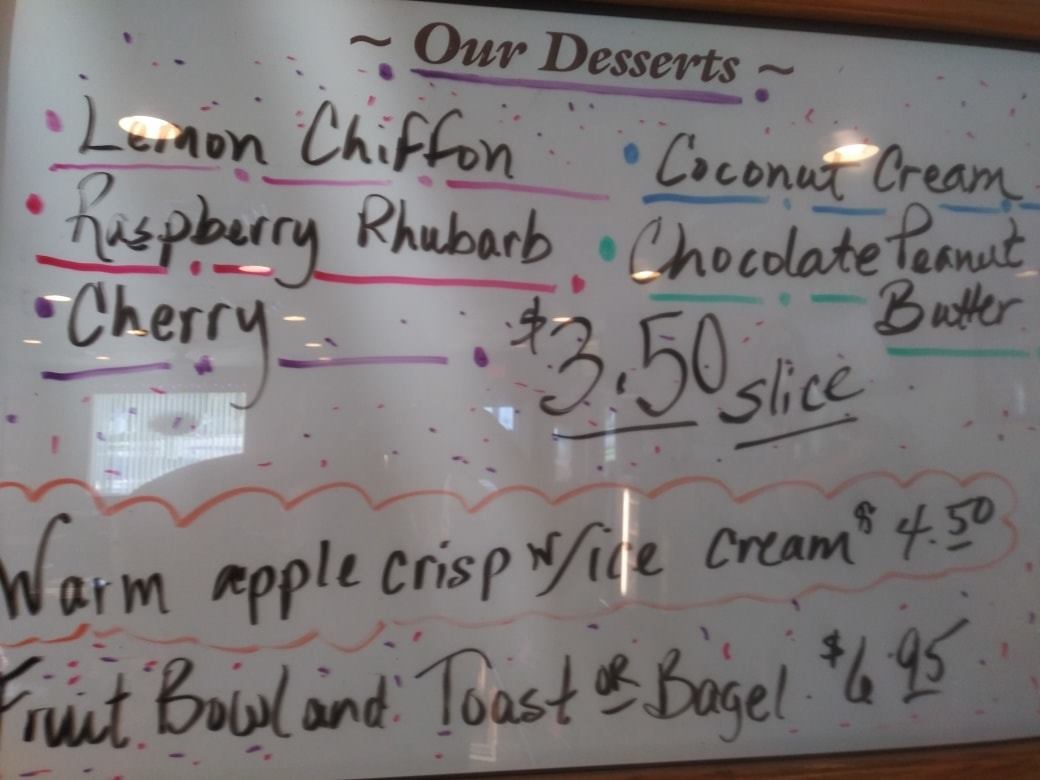 ~ Our Desserts ~
Lemon Chiffon
Raspberry Rhubarb
Cherry
Coconut Cream
Chocolate Peanut
Butter
$3.50 slice
Warm apple crisp w/ice cream $4.50
Fruit Bowl and Toast OR Bagel $6.95